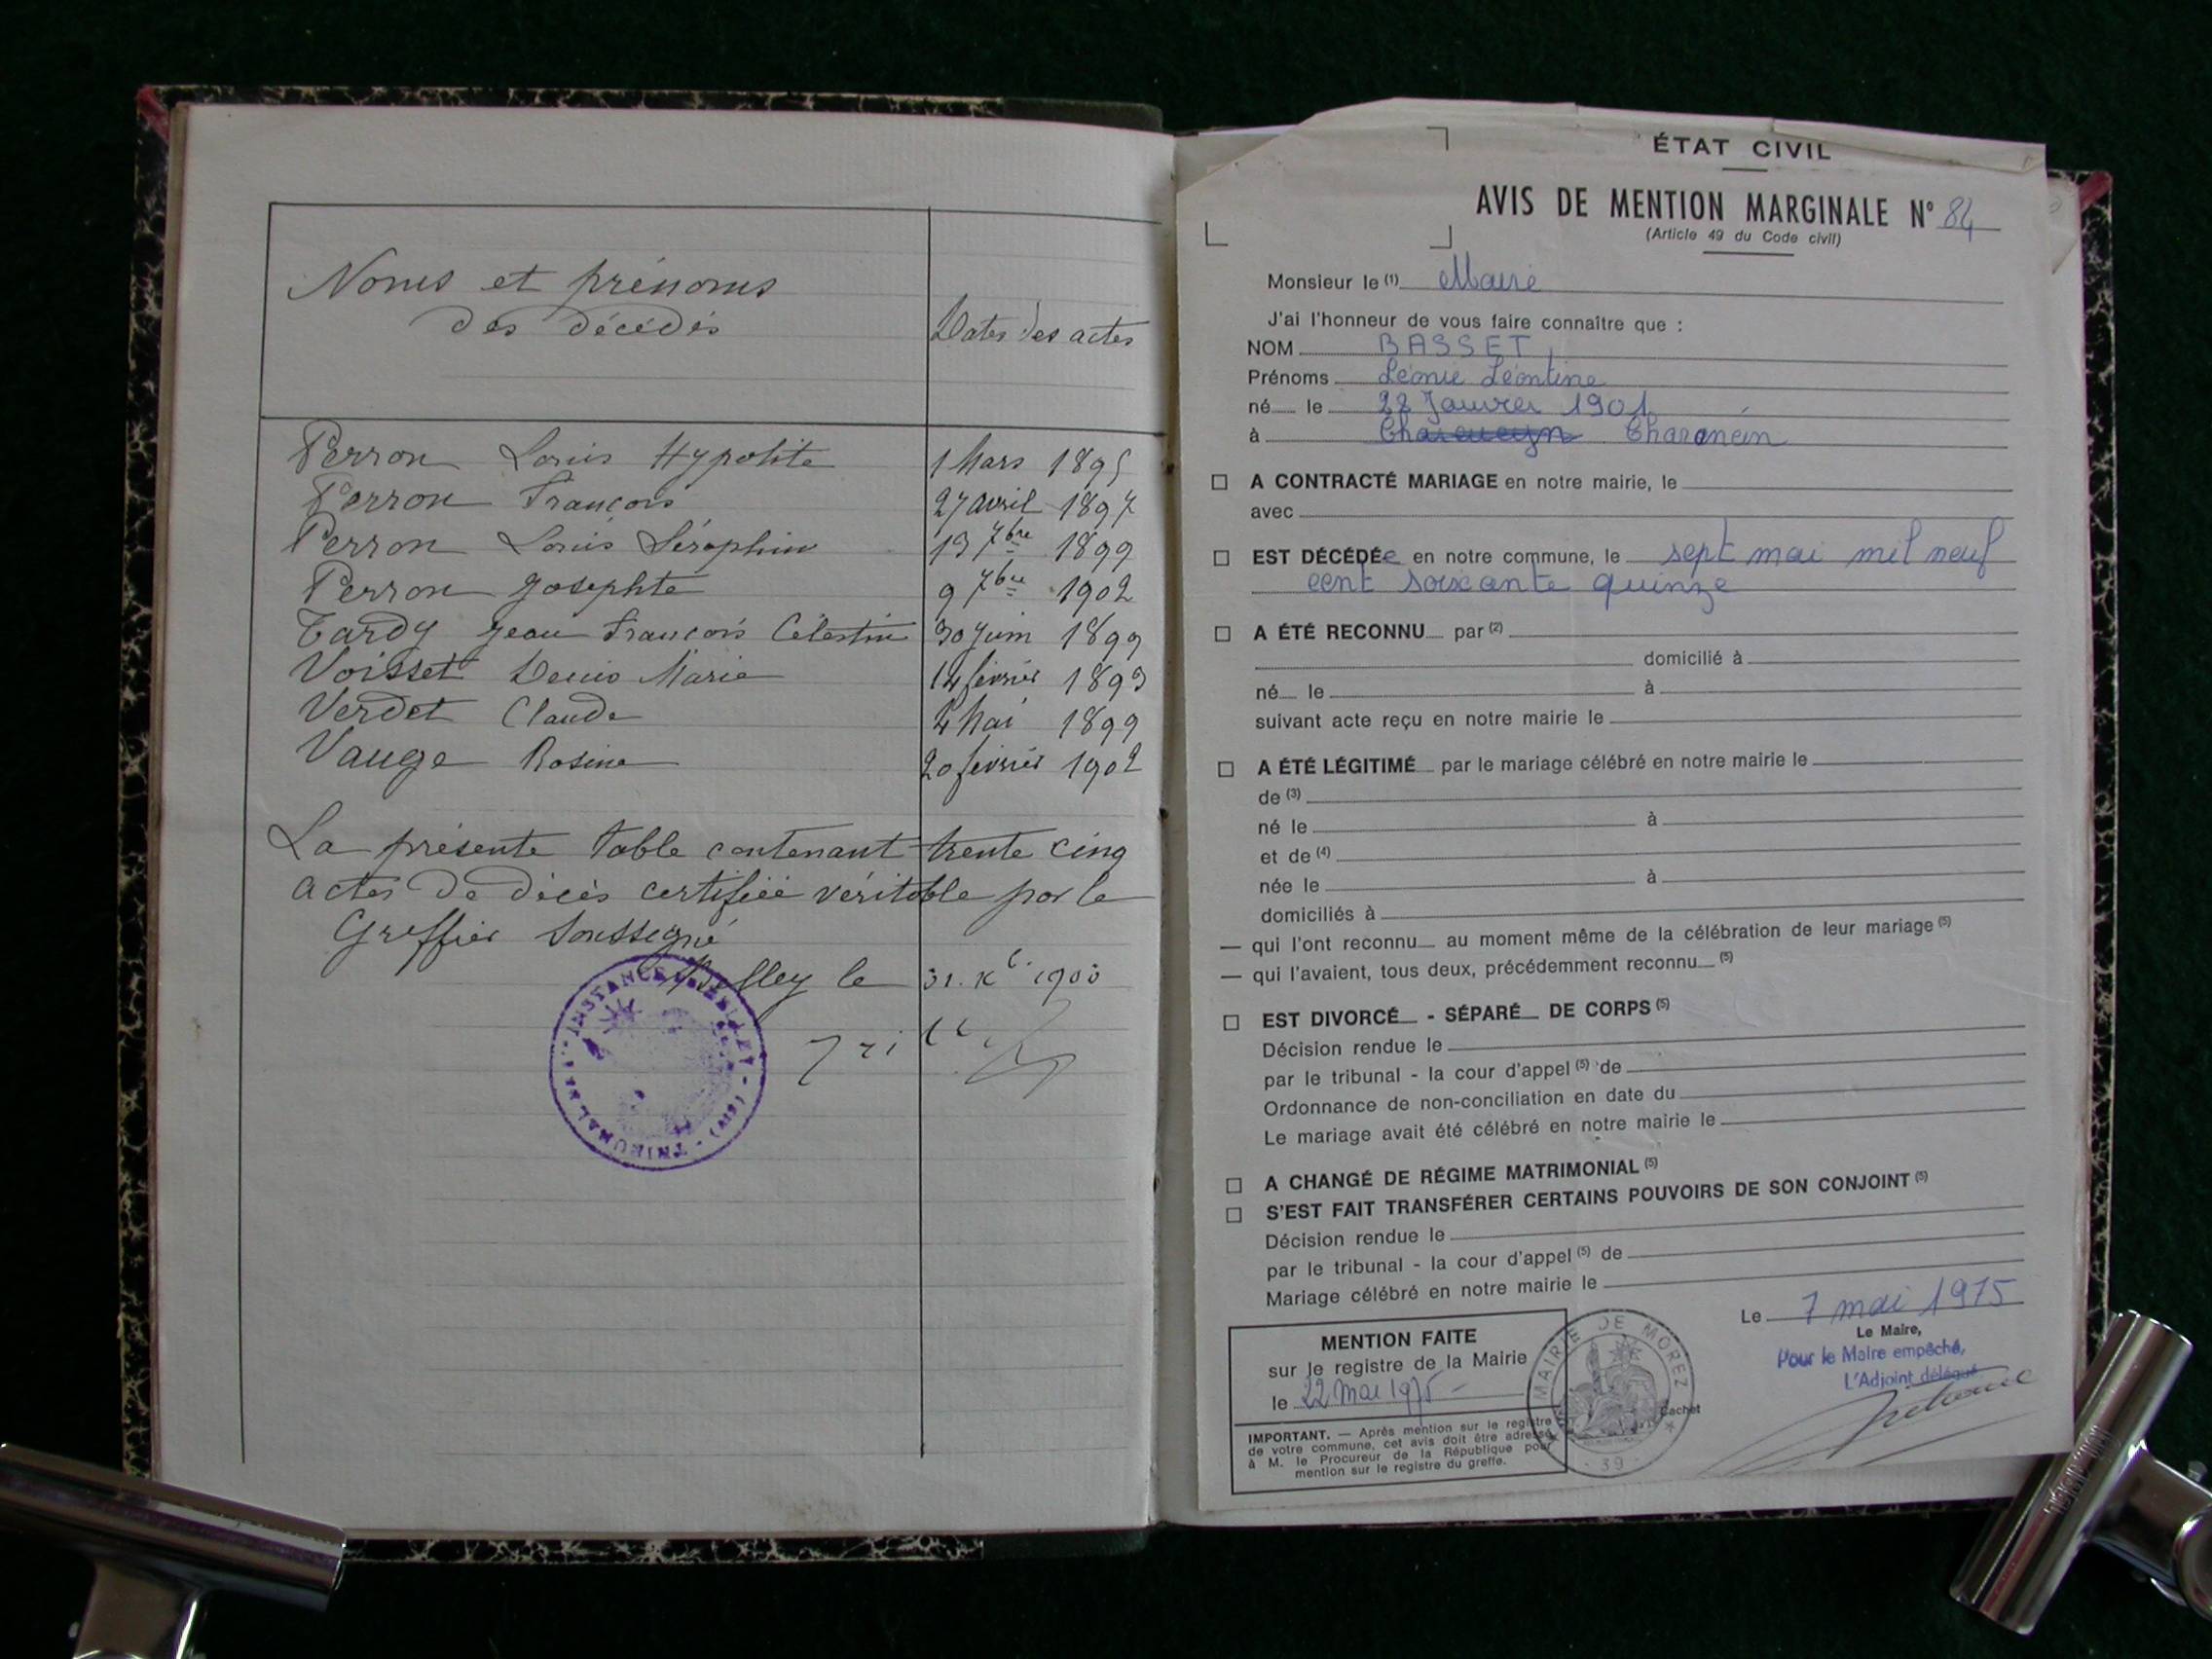 Noms et prénoms
des décédés
Dates des actes
Perron Louis Hypolite 1 Mars 1895
Perron François 27 avril 1897
Perron Louis Séraphin 13 7bre 1899
Perron Josephte 9 7bre 1902
Tardy Jean François Célestin 30 Juin 1899
Voisset Denis Marie 14 février 1893
Verdet Claude 4 Mai 1899
Vauge Rosine 20 février 1902
La présente table contenant trente cinq
actes de décès certifiée véritable par le
Greffier soussigné
Belley le 31. Xb. 190
TRIBUNAL INSTANCE
ÉTAT CIVIL
AVIS DE MENTION MARGINALE N° 84
(Article 49 du Code civil)
Monsieur le (1) Maire
J'ai l'honneur de vous faire connaître que :
NOM BASSET
Prénoms Léonie Léontine
né le 22 Janvier 1901
à Charancin
□ A CONTRACTÉ MARIAGE en notre mairie, le
avec
□ EST DÉCÉDÉe en notre commune, le sept mai mil neuf
cent soixante quinze
□ A ÉTÉ RECONNU par (2)
domicilié à
né le à
suivant acte reçu en notre mairie le
□ A ÉTÉ LÉGITIMÉ par le mariage célébré en notre mairie le
de (3)
né le à
et de (4)
née le à
domiciliés à
— qui l'ont reconnu au moment même de la célébration de leur mariage (5)
— qui l'avaient, tous deux, précédemment reconnu (5)
□ EST DIVORCÉ - SÉPARÉ DE CORPS (5)
Décision rendue le
par le tribunal - la cour d'appel (5) de
Ordonnance de non-conciliation en date du
Le mariage avait été célébré en notre mairie le
□ A CHANGÉ DE RÉGIME MATRIMONIAL (5)
□ S'EST FAIT TRANSFÉRER CERTAINS POUVOIRS DE SON CONJOINT (5)
Décision rendue le
par le tribunal - la cour d'appel (5) de
Mariage célébré en notre mairie le
Le 7 mai 1975
Le Maire,
Pour le Maire empêché,
L'Adjoint délégué
MENTION FAITE
sur le registre de la Mairie
le 22 mai 1975 -
MAIRIE DE MOREZ
- 39 -
Cachet
IMPORTANT. — Après mention sur le registre
de votre commune, cet avis doit être adressé
à M. le Procureur de la République pour
mention sur le registre du greffe.